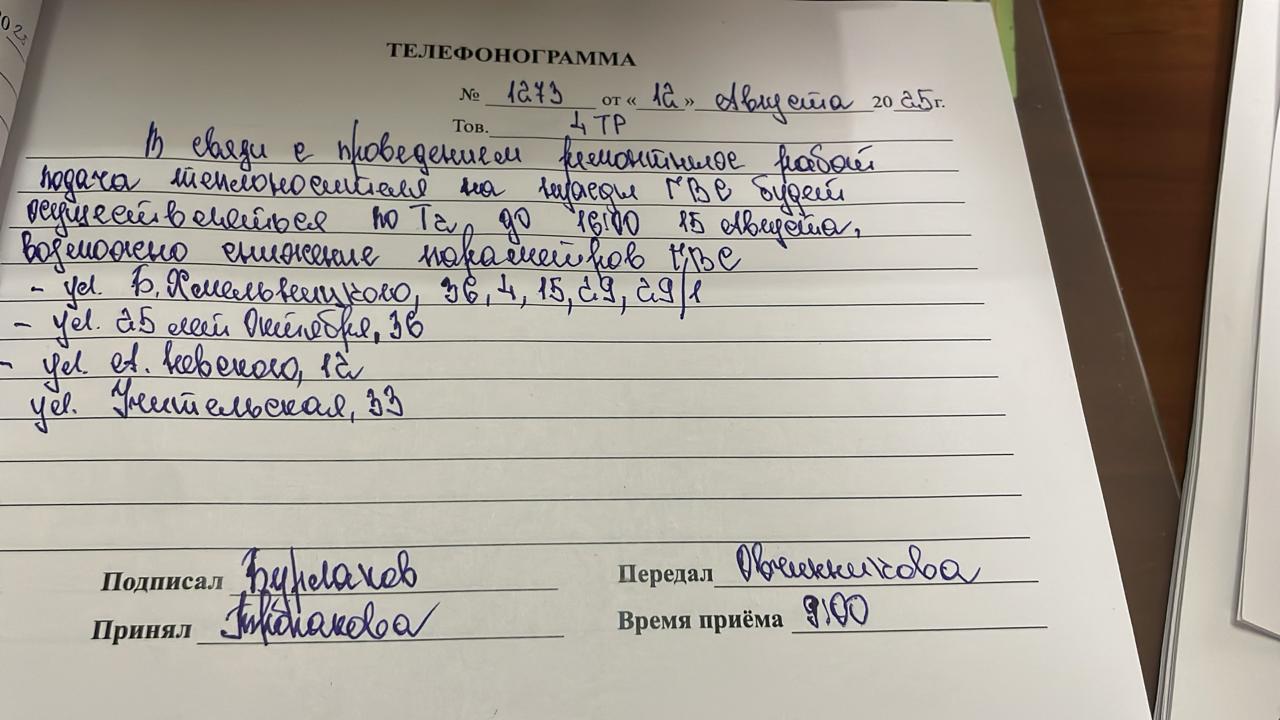 2023
ТЕЛЕФОНОГРАММА
№ 1273 от « 12 » Августа 20 25 г.
Тов. 4 ТР
В связи с проведением ремонтных работ
подача теплоносителя на нужды ГВС будет
осуществляться по Т2 до 16:00 15 Августа,
возможно снижение параметров ГВС
- ул. Б. Хмельницкого, 36, 4, 15, 29, 29/1
- ул. 25 лет Октября, 36
- ул. А. Невского, 12
ул. Учительская, 33
Подписал Бурлаков
Передал Овчинникова
Принял
Время приёма 9:00